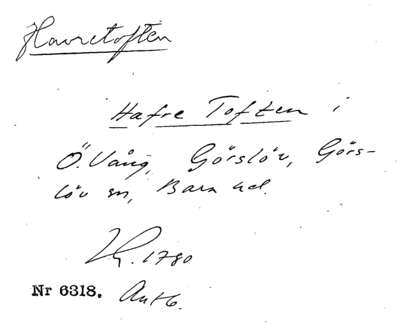 Havretoften
Hafre Toften i
Ö. Vång, Görslöv, Görs-
löv sn, Bara hd.
1780
Nr 6318.